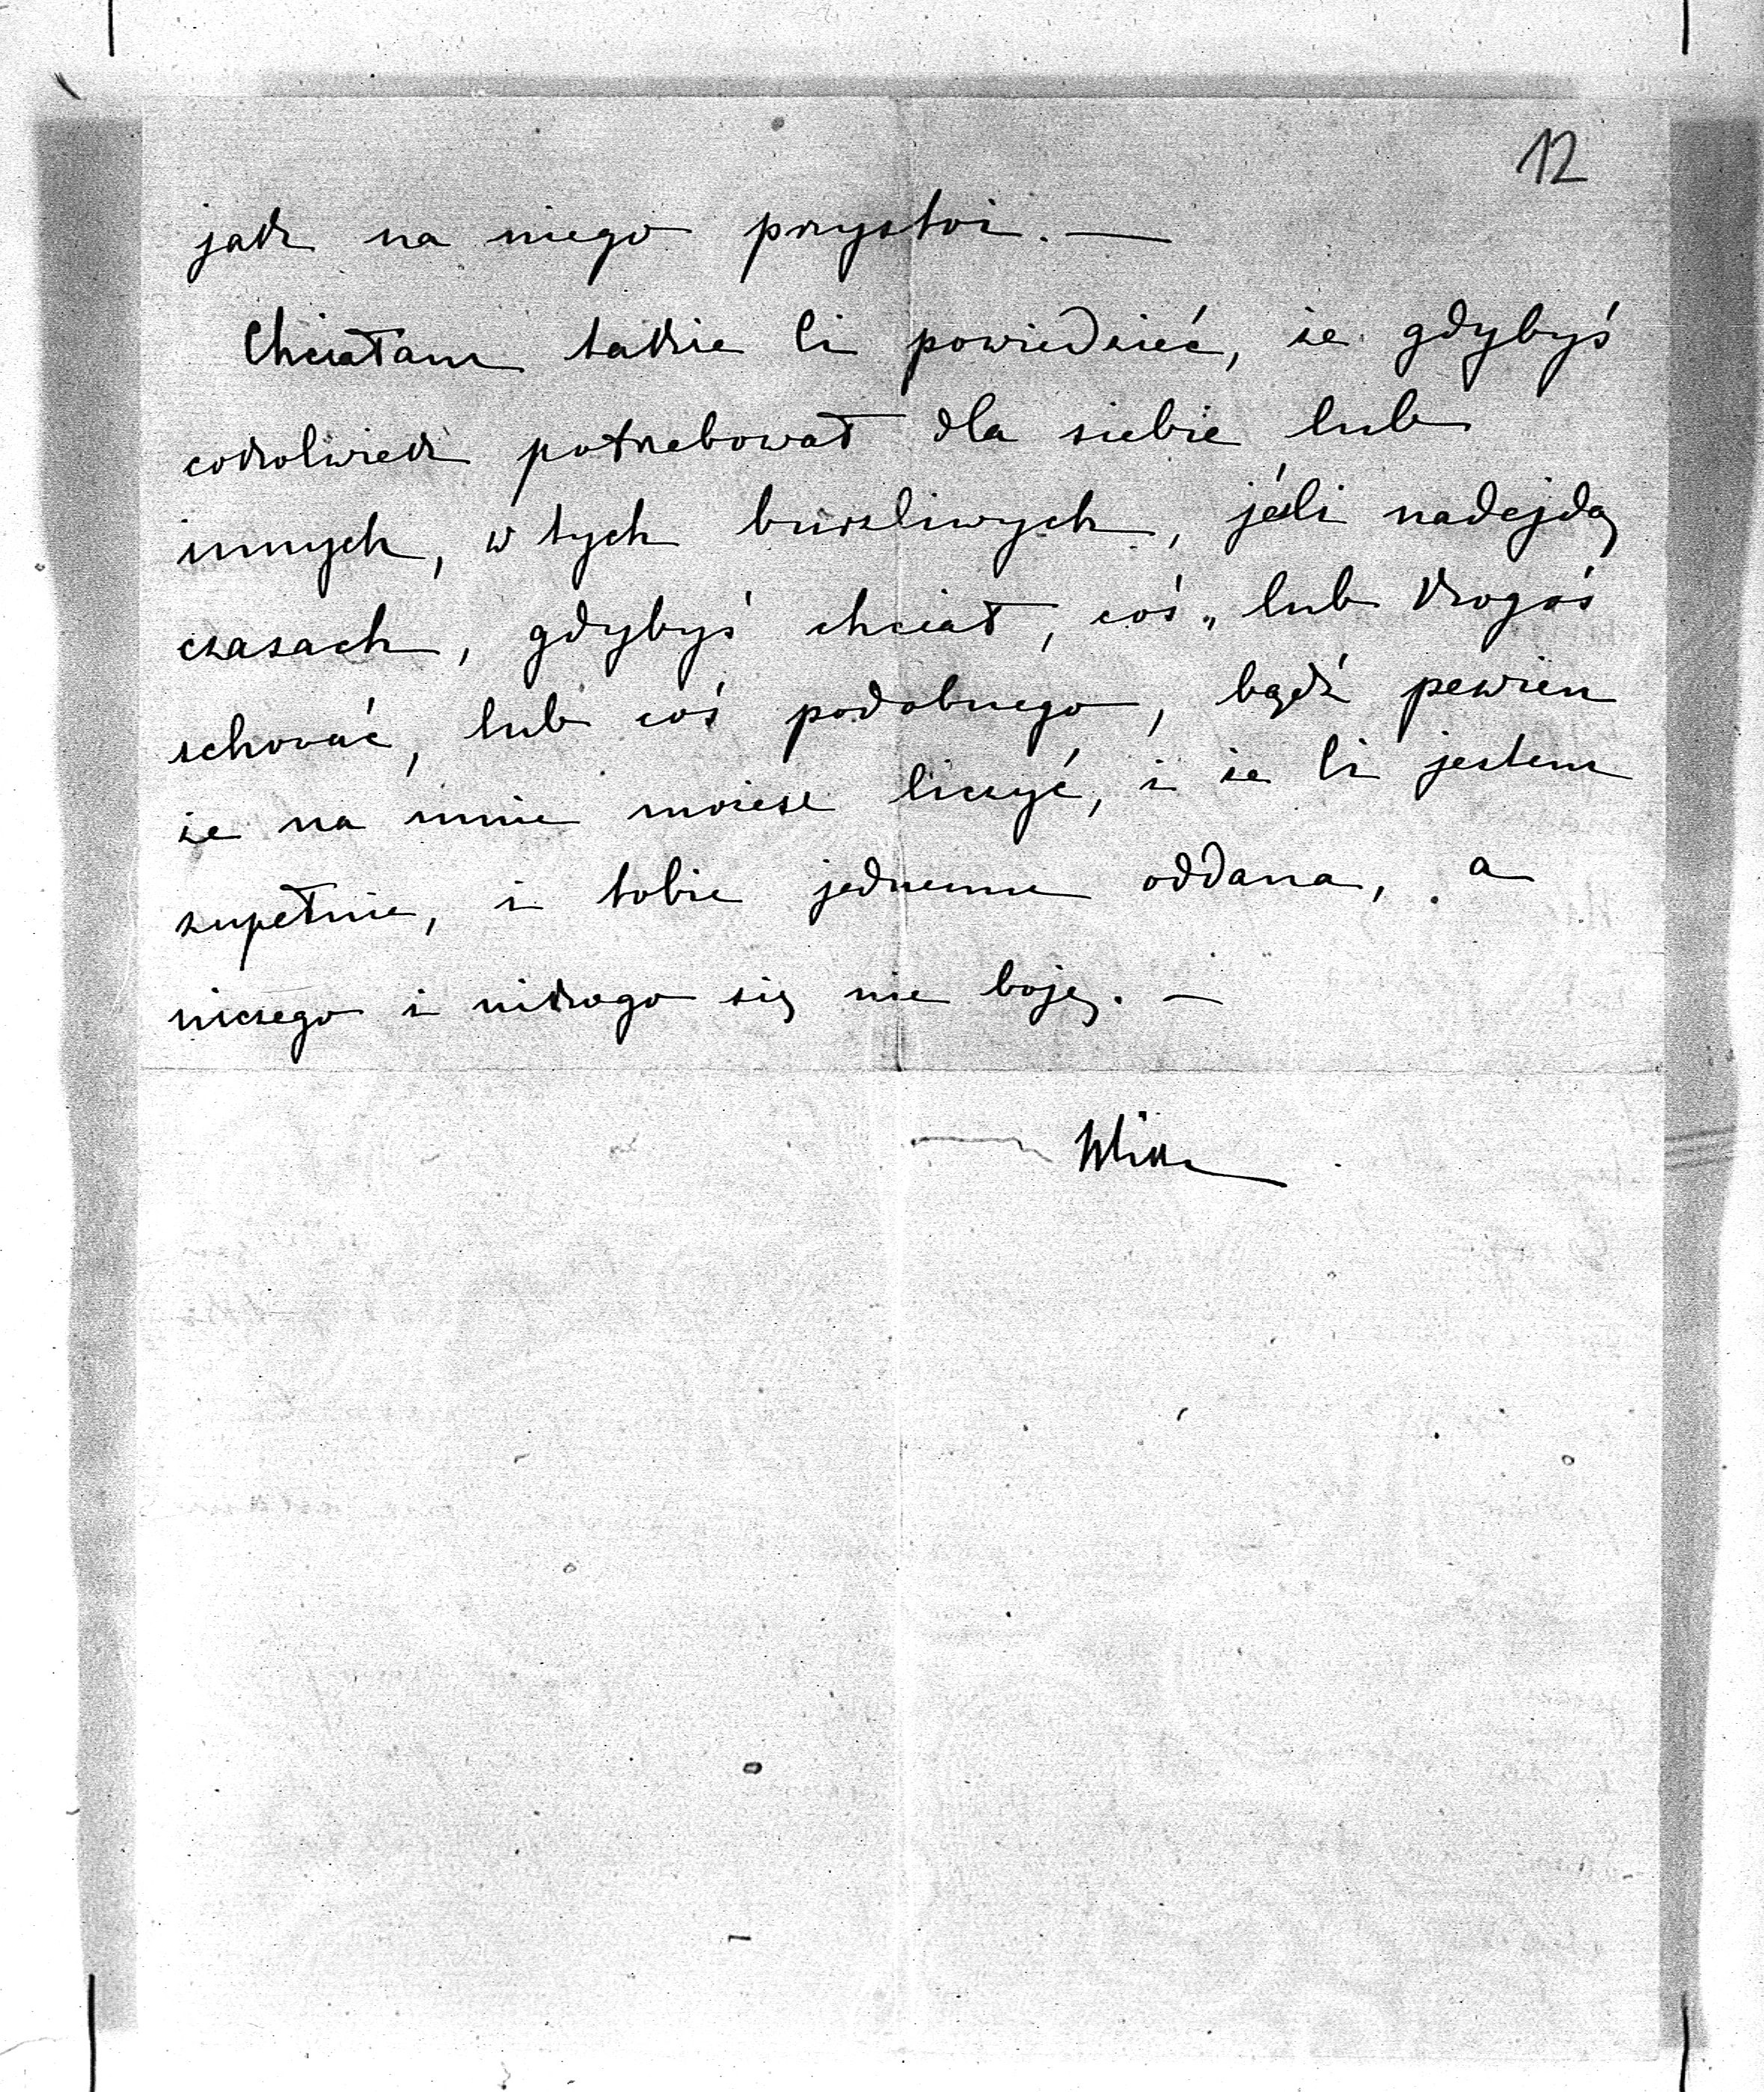 12
jak na niego przystoi. —
Chciałam także Ci powiedzieć, że gdybyś
cokolwiek potrzebował dla siebie lub
innych, w tych burzliwych, jéśli nadejdą
czasach, gdybyś chciał, coś„ lub kogoś
schować, lub coś podobnego, bądź pewien
że na mnie możesz liczyć, i że Ci jestem
zupełnie, i tobie jednemu oddana, . a
niczego i nikogo się nie boję. —